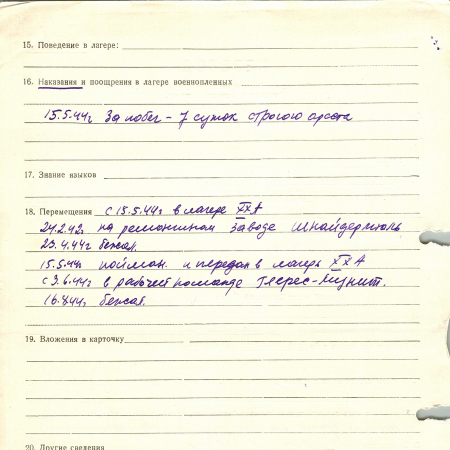 15. Поведение в лагере:
16. Наказания и поощрения в лагере военнопленных
15.5.44г За побег - 7 суток строгого ареста
17. Знание языков
18. Перемещения с 15.5.44г в лагере XXA
24.2.42г на ремонтном заводе Шнайдемюль
23.4.44г бежал.
15.5.44г пойман и передан в лагерь XXA
с 3.6.44г в рабочей команде
16.8.44г бежал.
19. Вложения в карточку
20. Другие сведения